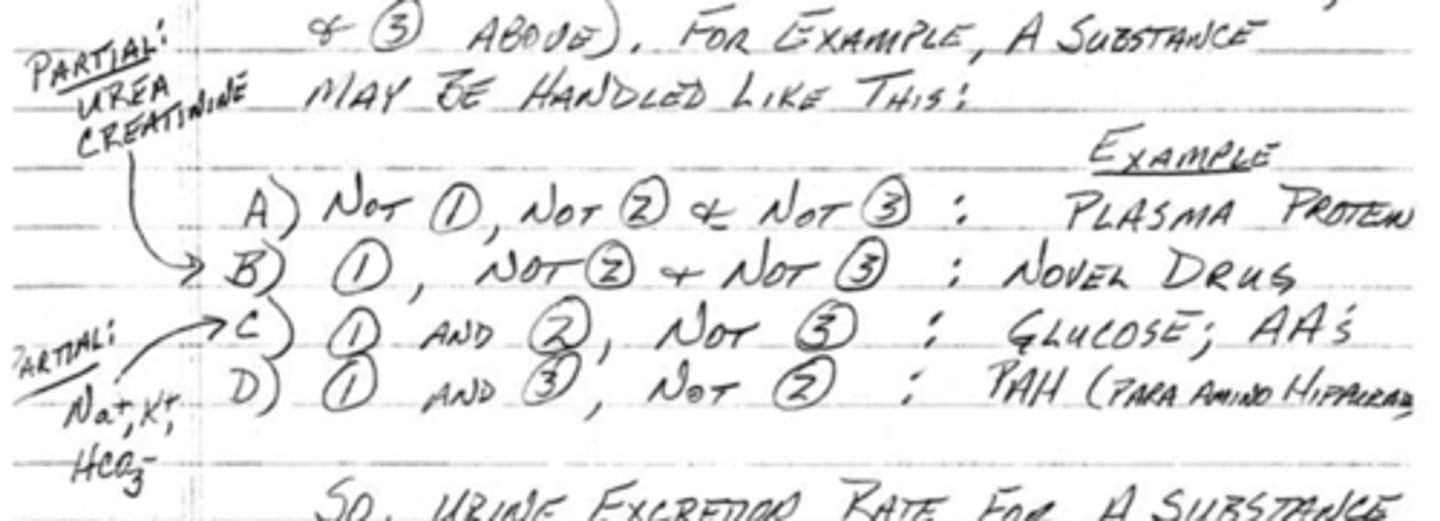 & ③ ABOVE). FOR EXAMPLE, A SUBSTANCE
MAY BE HANDLED LIKE THIS:
PARTIAL:
UREA
CREATININE
EXAMPLE
A) NOT ①, NOT ② & NOT ③ : PLASMA PROTEIN
B) ①, NOT ② + NOT ③ : NOVEL DRUG
C) ① AND ②, NOT ③ : GLUCOSE; AA's
D) ① AND ③, NOT ② : PAH (PARA AMINO
PARTIAL:
Na+, K+,
HCO3-
SO, URINE EXCRETION RATE FOR A SUBSTANCE